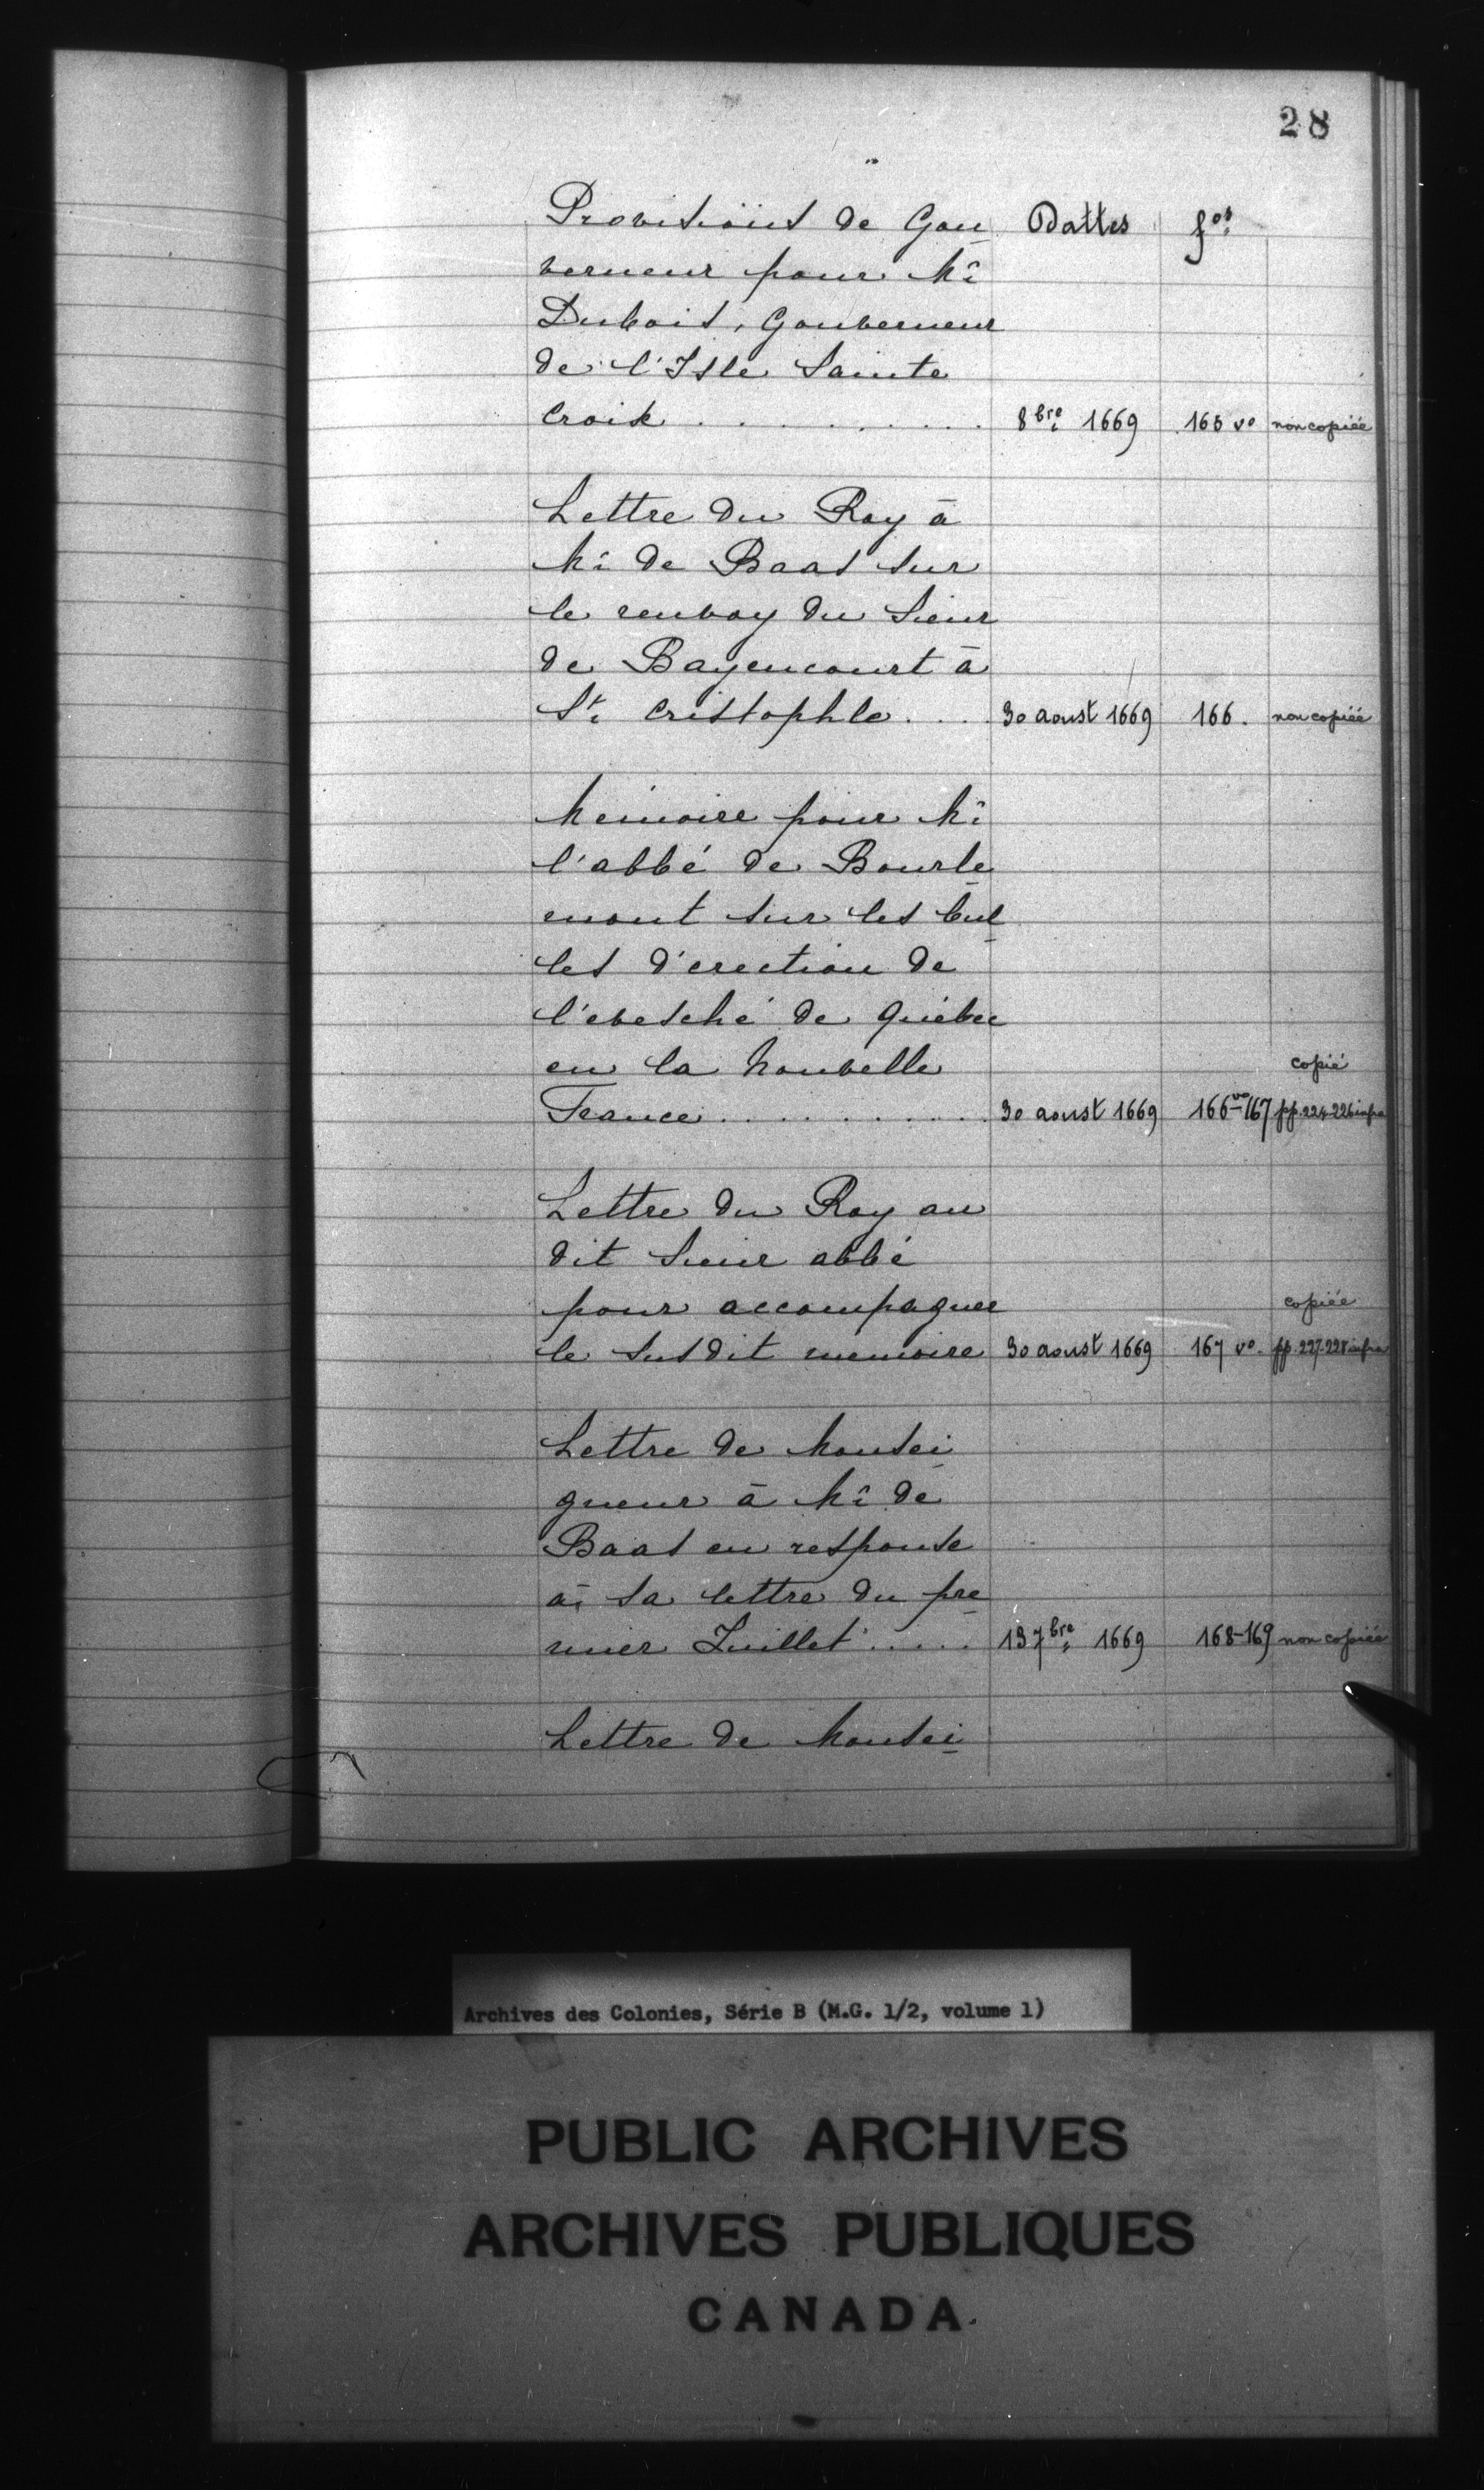 28
Provisions de Gou Dattes fos
verneur pour Mr
Dubois, Gouverneur
de l'Isle Sainte
Croix . . . . . . . . . . 8bre 1669 165 vo non copiée
Lettre du Roy à
Mr de Baas sur
le renvoy du Sieur
de Bayencourt à
St Cristophle . . . 30 aoust 1669 166. non copiée
Mémoire pour Mr
l'abbé de Bourle
mont sur les bul
les d'erection de
l'evesché de Québec
en la Nouvelle copié
France . . . . . . . . . . 30 aoust 1669 166vo-167 pp. 224-226 infra
Lettre du Roy au
dit Sieur abbé
pour accompagner copiée
le susdit memoire 30 aoust 1669 167 vo. pp. 227-228 infra
Lettre de Monsei
gneur à Mr de
Baas en response
à sa lettre du pre
mier Juillet . . . . . 13 7bre 1669 168-169 non copiée
Lettre de Monsei
Archives des Colonies, Série B (M.G. 1/2, volume 1)
PUBLIC ARCHIVES
ARCHIVES PUBLIQUES
CANADA.